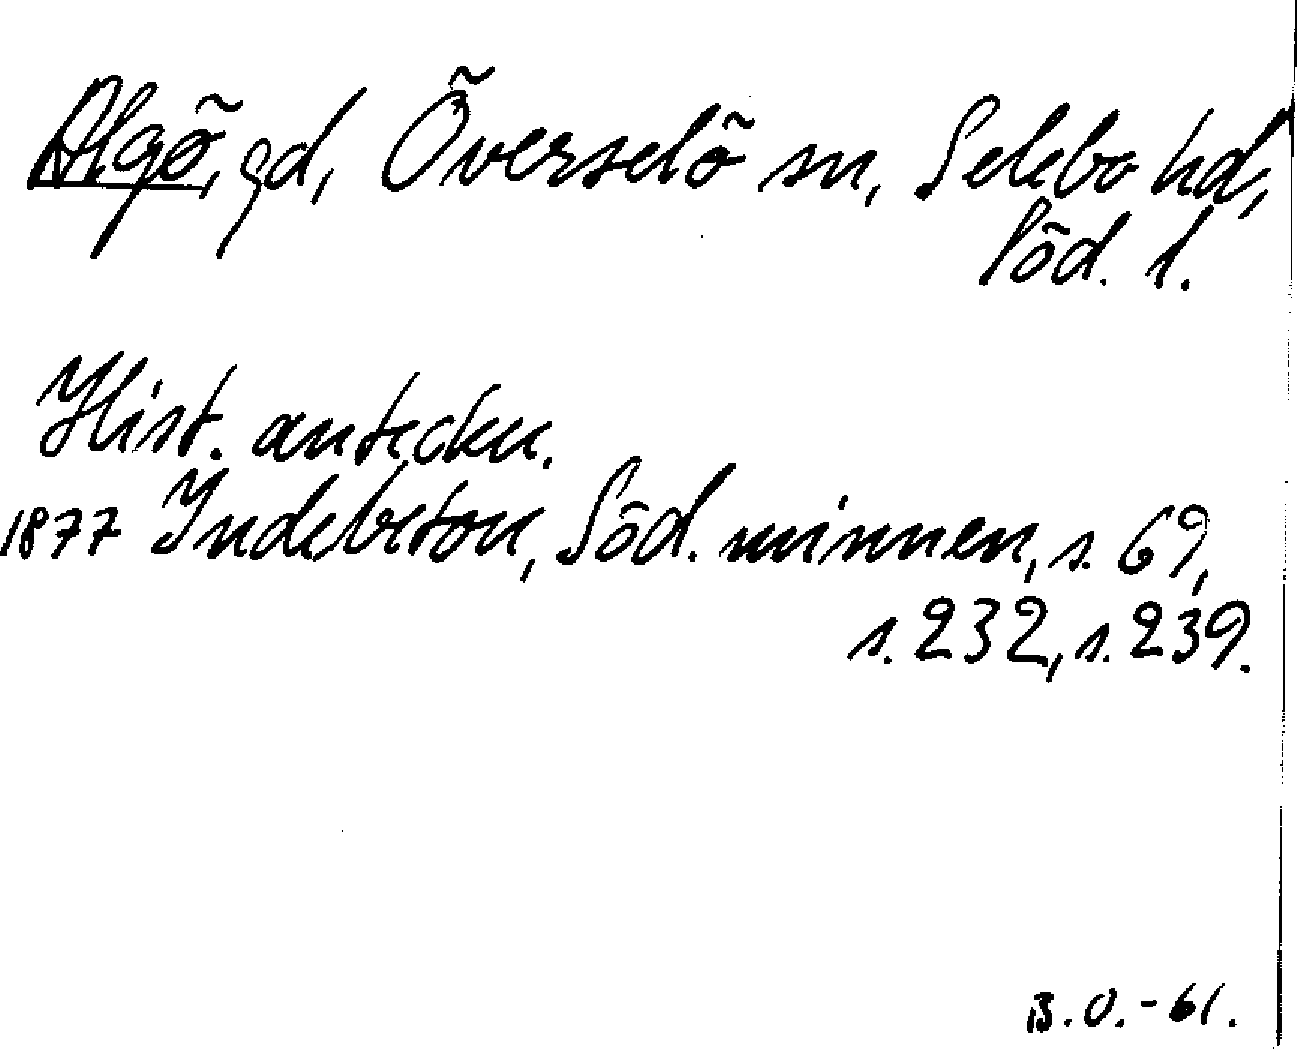 Algö, gd, Överselö sn, Selebo hd,
Söd. l.
Hist. anteckn.
1877 Indebetou, Söd. minnen, s. 69,
s. 232, s. 239.
B.O.-61.